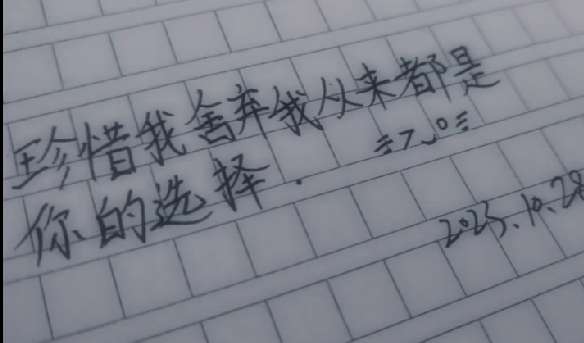 珍惜我舍弃我从来都是
你的选择.
2023.10.28